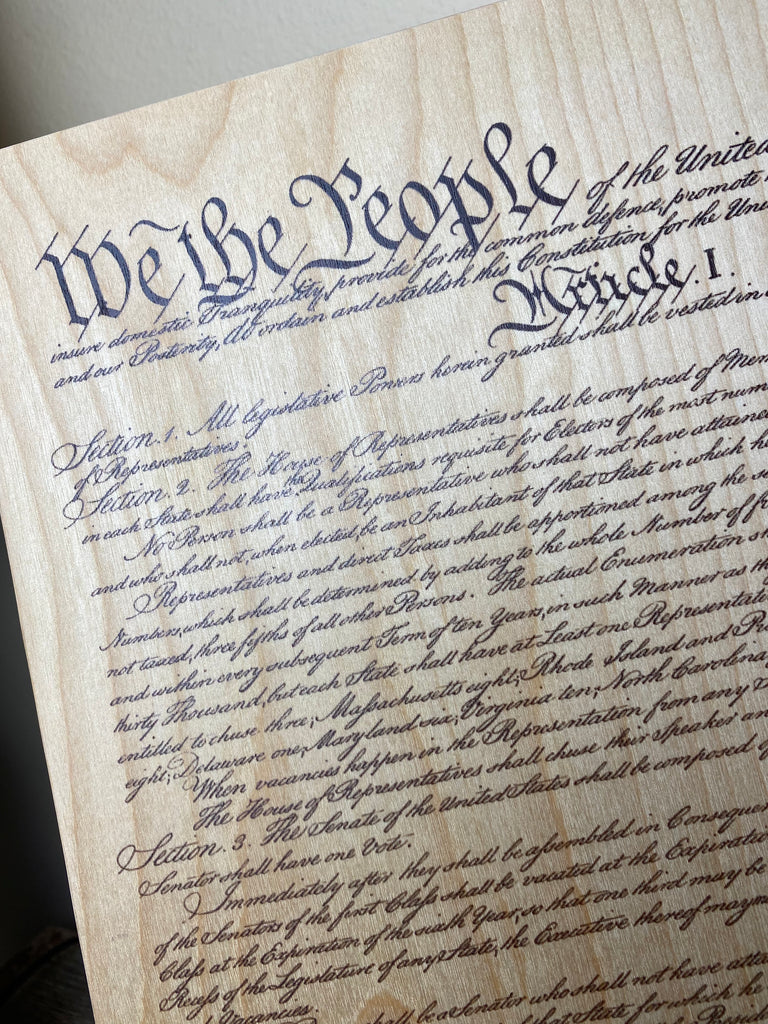 We the People of the United
insure domestic Tranquility, provide for the common defence, promote
and our Posterity, do ordain and establish this Constitution for the Uni
Article. I.
Section. 1. All legislative Powers herein granted shall be vested in a
of Representatives.
Section. 2. The House of Representatives shall be composed of Mem
in each State shall have the Qualifications requisite for Electors of the most num
No Person shall be a Representative who shall not have attained
and who shall not, when elected, be an Inhabitant of that State in which he
Representatives and direct Taxes shall be apportioned among the se
Numbers, which shall be determined by adding to the whole Number of f
not taxed, three fifths of all other Persons. The actual Enumeration s
and within every subsequent Term of ten Years, in such Manner as th
thirty Thousand, but each State shall have at Least one Representati
entitled to chuse three, Massachusetts eight, Rhode Island and Pr
eight, Delaware one, Maryland six, Virginia ten, North Carolina
When vacancies happen in the Representation from any
The House of Representatives shall chuse their Speaker an
Section. 3. The Senate of the United States shall be composed of
Senator shall have one Vote.
Immediately after they shall be assembled in Consequen
of the Senators of the first Class shall be vacated at the Expiration
Class at the Expiration of the sixth Year, so that one third may be
Recess of the Legislature of any State, the Executive thereof may m
Vacancies.
shall be a Senator who shall not have atta
that State for which he